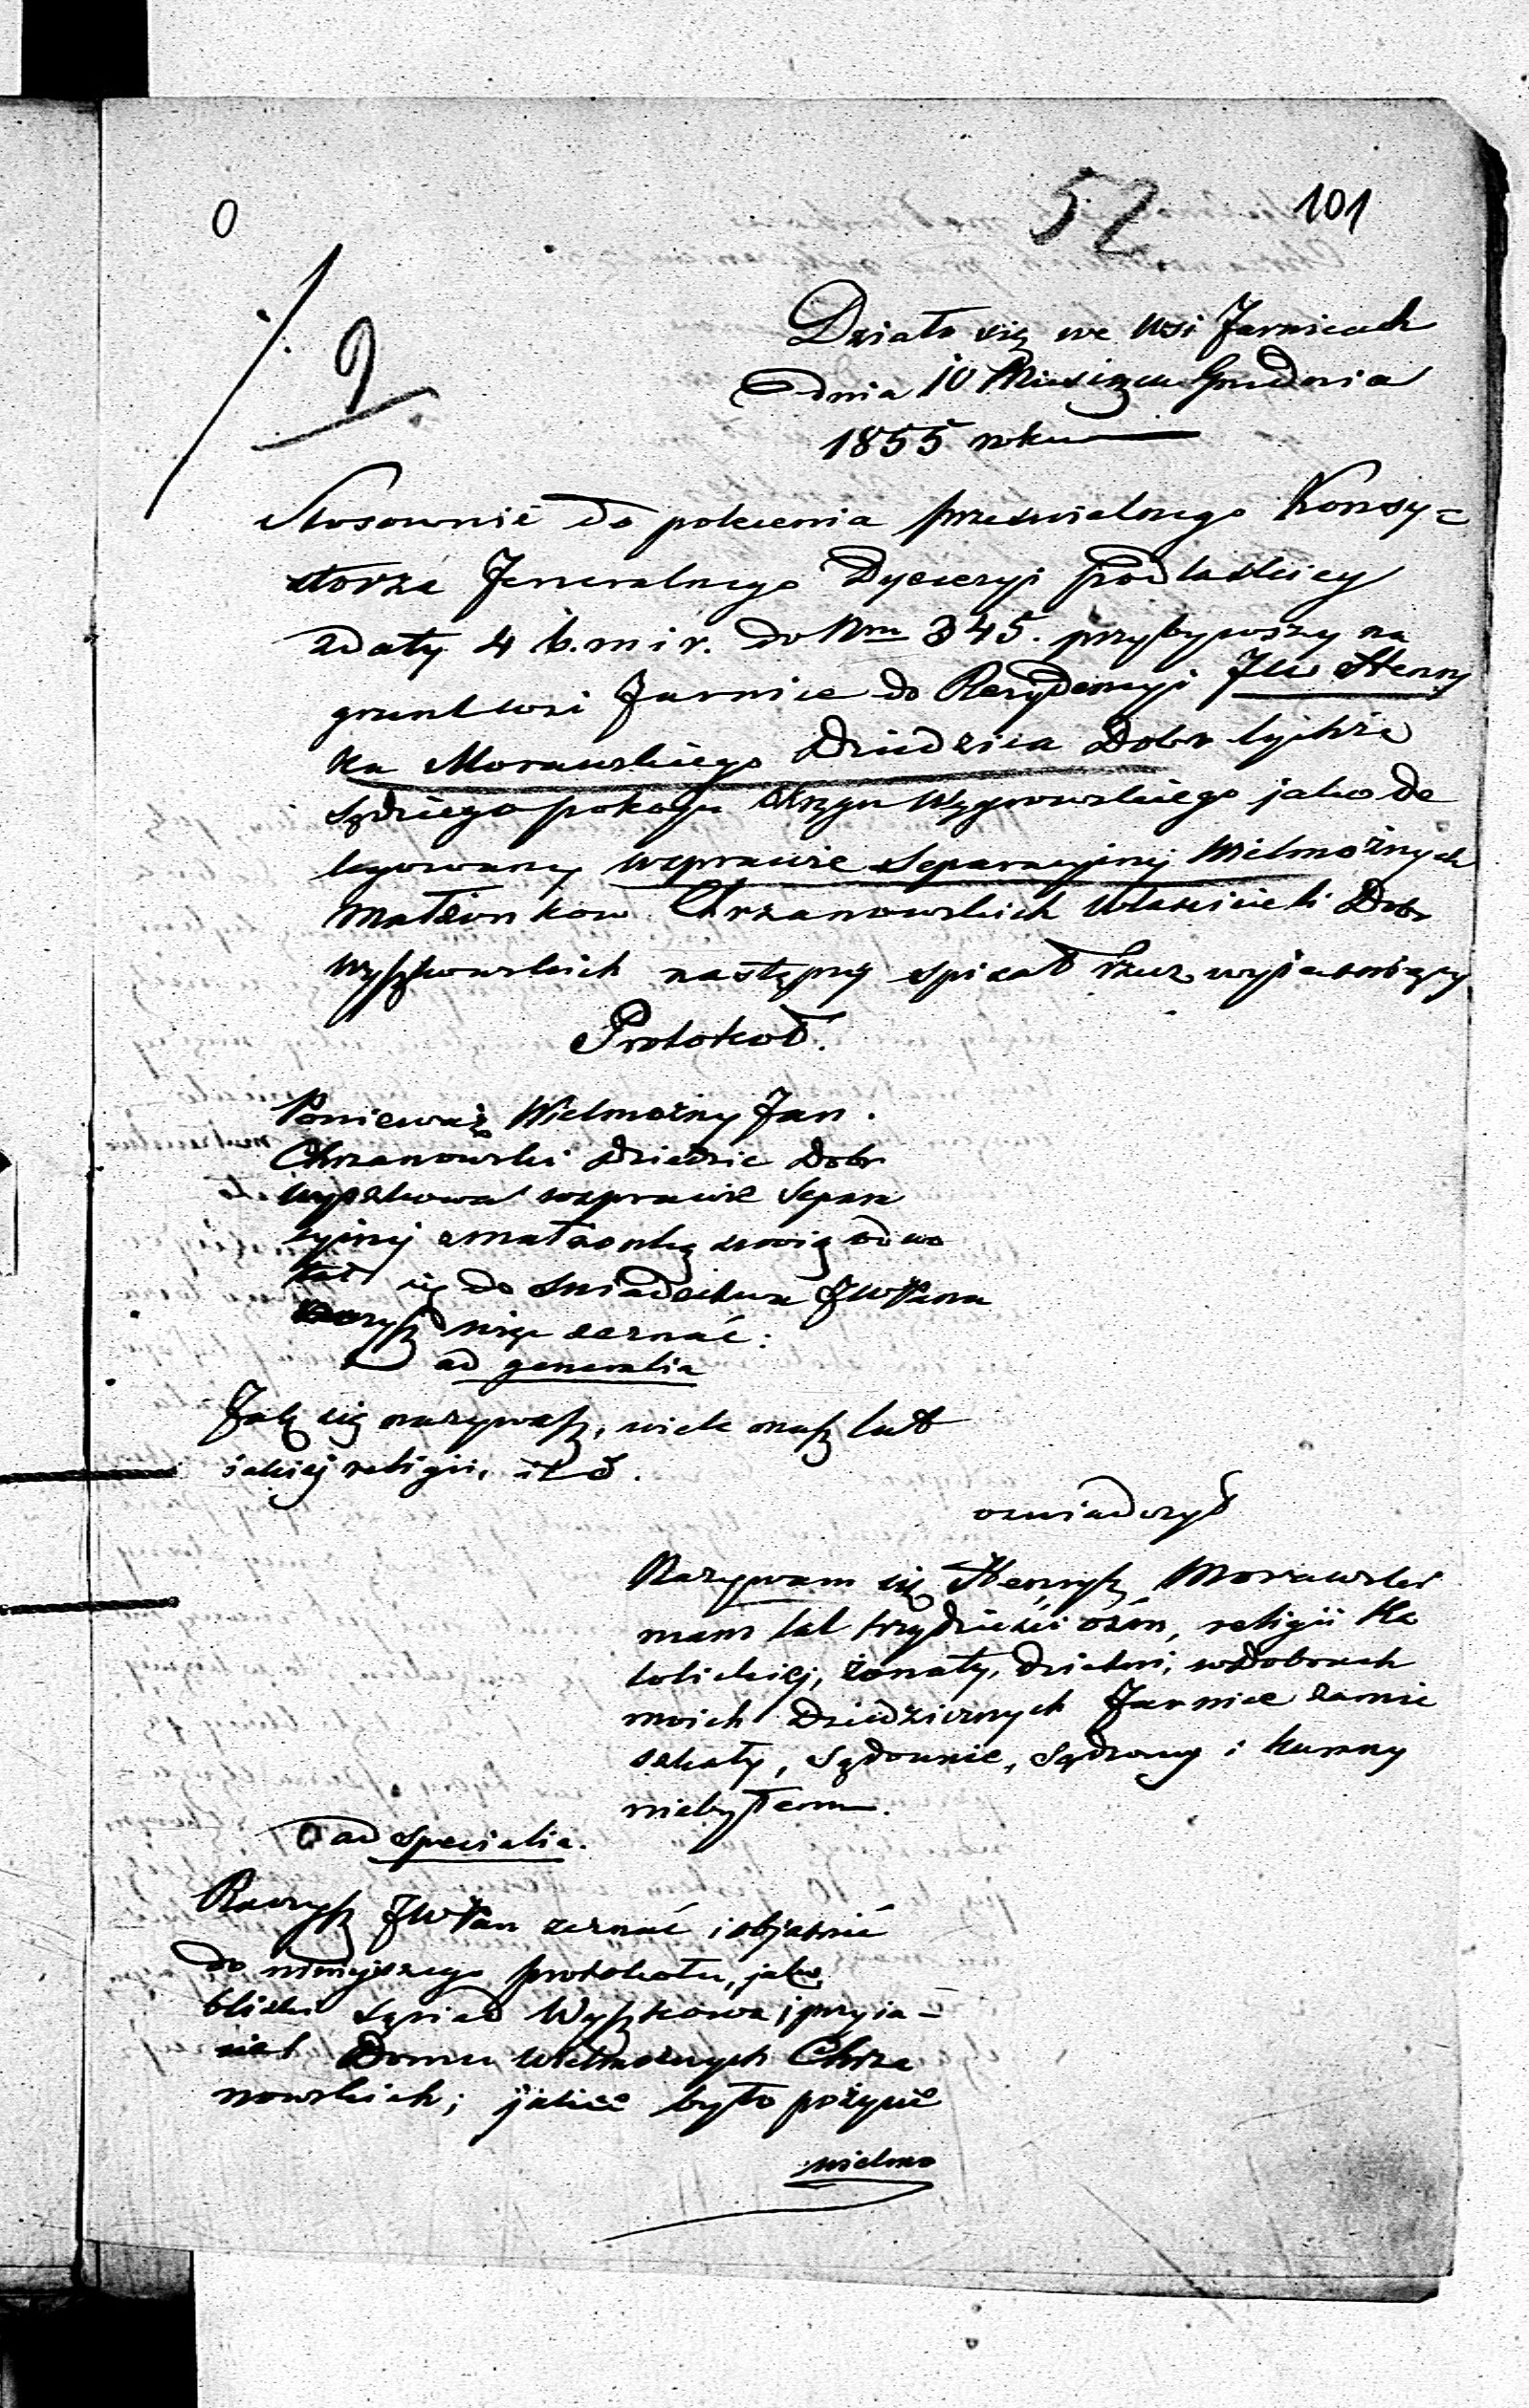 0
52
101
2
Działo się we Wsi Jarnicach
dnia 10 Miesiąca Grudnia
1855 roku
Stosownie do polecenia prześwietnego Konsy=
storza Jeneralnego Dyecezyi Podlaskiey
z daty 4 b. m i r. do Nru 345. przybywszy na
grunt wsi Jarnice do Rezydencyi JW Henry
ka Morawskiego Dziedzica Dobr tychże
Sędziego pokoju Okręgu Węgrowskiego jako de
legowany w sprawie Separacyjnej Wielmożnych
Małżonkow Chrzanowskich Właścicieli Dobr
Wyszkowskich następny spisał wyjaśniający
Protokoł.
Ponieważ Wielmożny Jan
Chrzanowski Dziedzic Dobr
Wyszkowa w sprawie Separa
cyjnej z małżonką swoią odwo
łał się do Swiadectwa JWPana
raczysz więc zeznać:
ad generalia
Jak się nazywasz, wiele masz lat
jakiej religii, i t d.
oświadczył
Nazywam się Henryk Morawski
mam lat trzydzieści ośm, religii Ka
tolickiej, żonaty, dzietni, w Dobrach
moich Dziedzicznych Jarnice zamie
szkały, Sądownie, Sądzony i karany
niebyłem.
ad specialia.
Raczysz JWPan zeznać i objaśnić
do niniejszego protokołu, jako
bliski sąsiad Wyszkowa i przyia=
ciel Domu Wielmożnych Chrza
nowskich; jakie było pożycie
wielmo